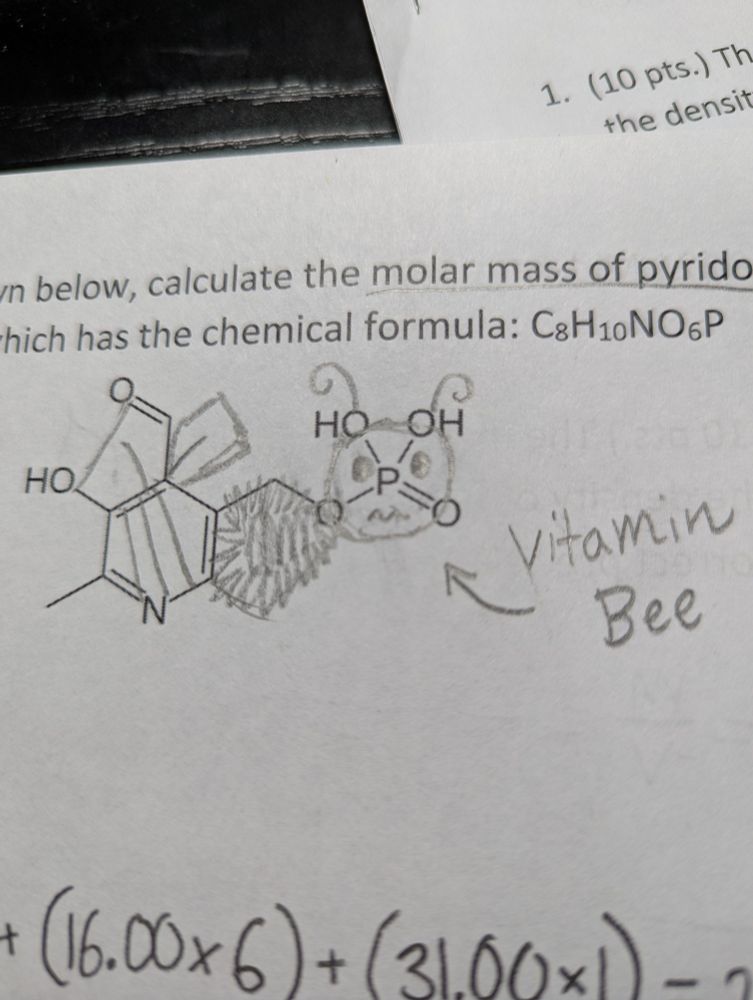 1. (10 pts.) Th
the densit
n below, calculate the molar mass of pyrido
hich has the chemical formula: C₈H₁₀NO₆P
O
HO OH
HO P
O O
N
Vitamin
Bee
+ (16.00x6) + (31.00x1) =